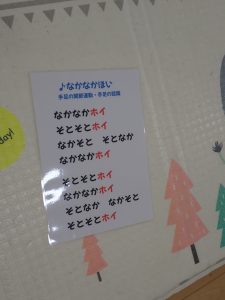 ♪なかなかほい
手足の開閉運動・手足の協調
なかなかホイ
そとそとホイ
なかそと　そとなか
なかなかホイ
そとそとホイ
なかなかホイ
そとなか　なかそと
そとそとホイ
day!